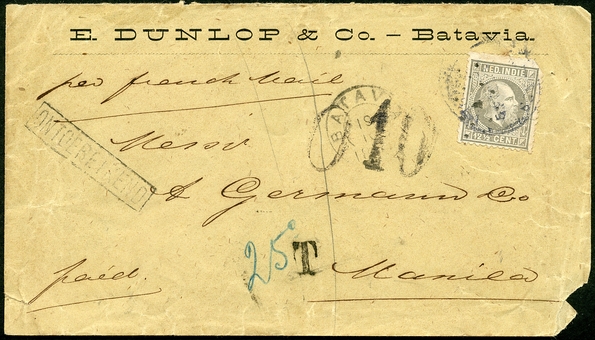 E. DUNLOP & Co. – Batavia.
per french Mail
NED. INDIE
12½ CENT.
BATAVIA
19
10
ONTOEREIKEND
Messrs
A Germann Co
25
T
paid.
Manila